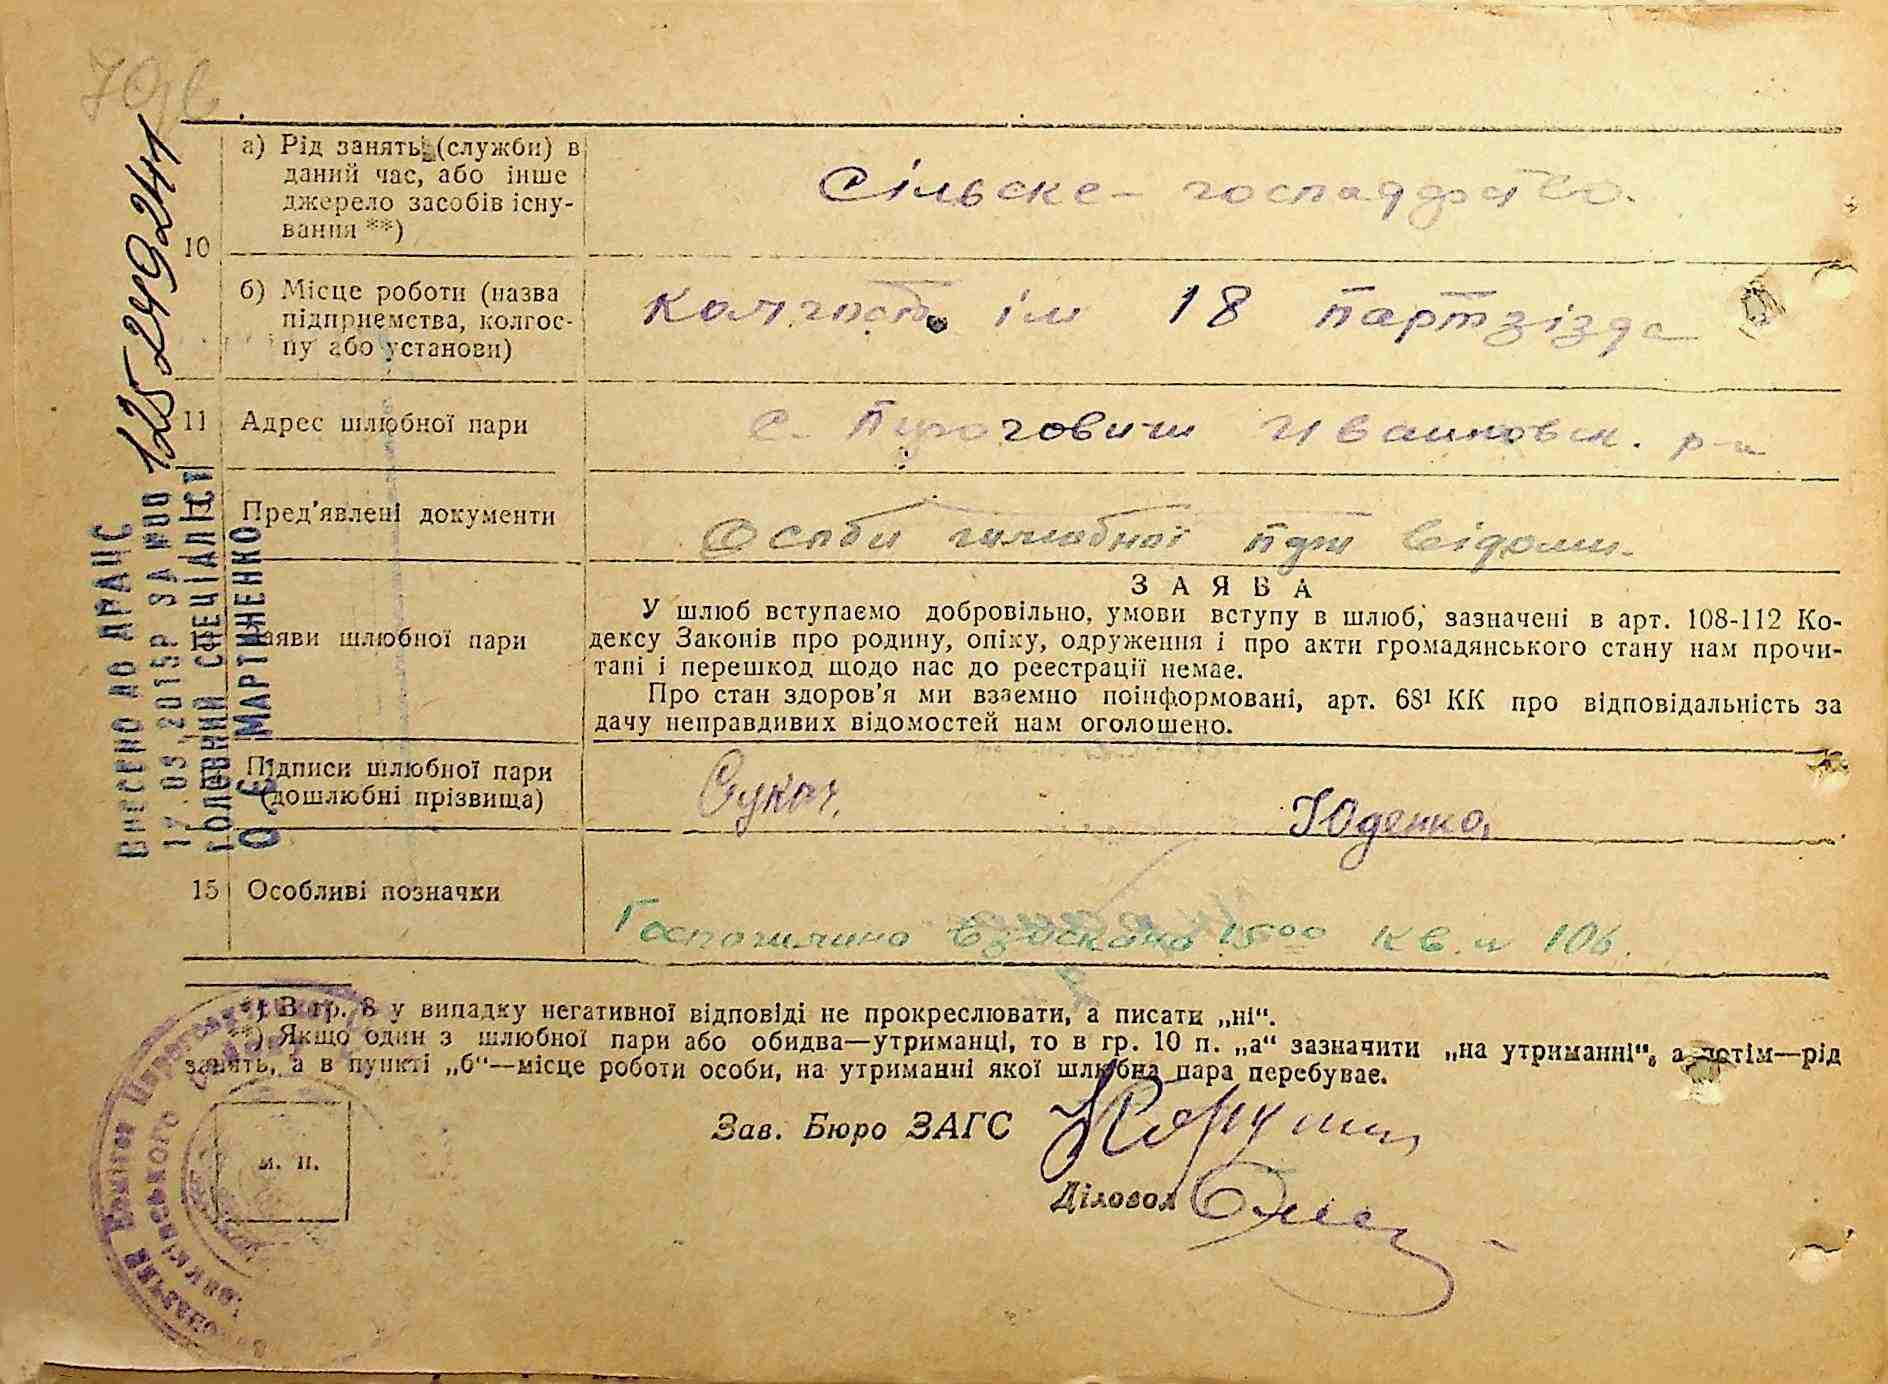 125249241
ВНЕСЕНО ДО ДРАЦС
17.03.2015Р ЗА №00
ГОЛОВНИЙ СПЕЦІАЛІСТ
О.Є. МАРТИНЕНКО
10
а) Рід занять (служби) в
даний час, або інше
джерело засобів існу-
вання **)
Сільске-господарство.
б) Місце роботи (назва
підприємства, колгос-
пу або установи)
колгосп ім 18 партзізда
11 Адрес шлюбної пари
с. Пироговичи Иванковск. р-н
Пред'явлені документи
Особи шлюбної пари відомі.
Заяви шлюбної пари
ЗАЯВА
У шлюб вступаємо добровільно, умови вступу в шлюб, зазначені в арт. 108-112 Ко-
дексу Законів про родину, опіку, одруження і про акти громадянського стану нам прочи-
тані і перешкод щодо нас до реєстрації немає.
Про стан здоров'я ми взаємно поінформовані, арт. 68¹ КК про відповідальність за
дачу неправдивих відомостей нам оголошено.
Підписи шлюбної пари
(дошлюбні прізвища)
Сукач. Юденко,
15 Особливі позначки
Госпошлино взискано 15 00 кв. № 106.
*) В гр. 8 у випадку негативної відповіді не прокреслювати, а писати „ні“.
**) Якщо один з шлюбної пари або обидва—утриманці, то в гр. 10 п. „а“ зазначити „на утриманні“, а потім—рід
занять, а в пункті „б“—місце роботи особи, на утриманні якої шлюбна пара перебуває.
м. п.
Зав. Бюро ЗАГС
Діловод